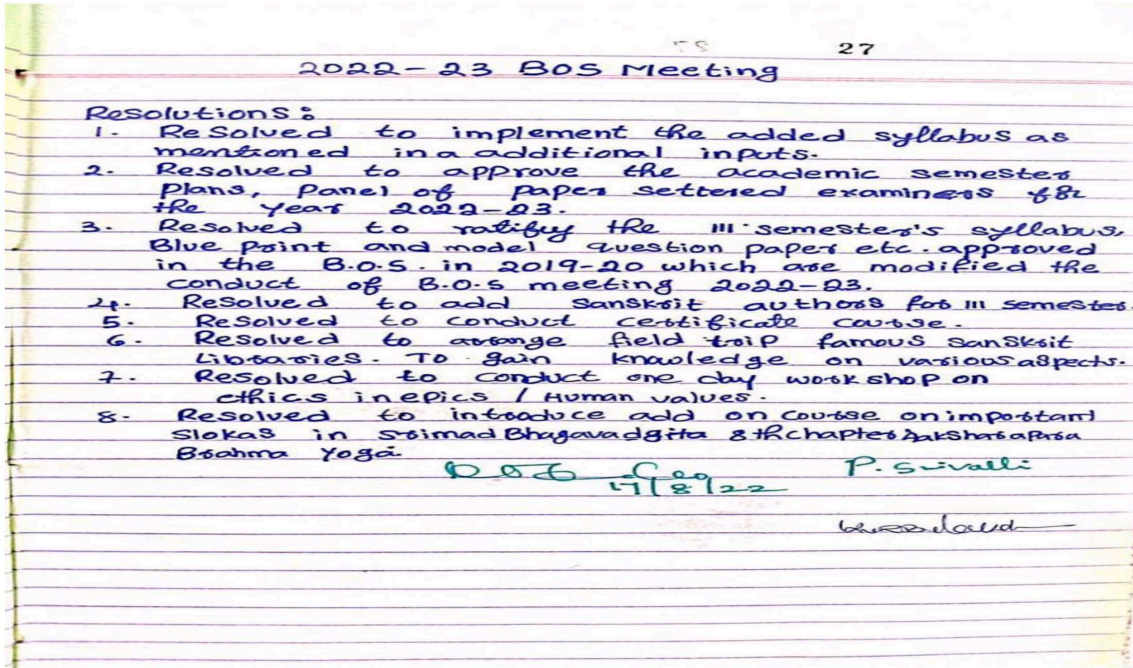 27
2022-23 BOS Meeting
Resolutions:
1. Resolved to implement the added syllabus as
mentioned in a additional inputs.
2. Resolved to approve the academic semester
Plans, Panel of paper settered examiners for
the year 2022-23.
3. Resolved to ratifuy the III semester's syllabus,
Blue Point and model question paper etc. approved
in the B.O.S. in 2019-20 which are modified the
conduct of B.O.S meeting 2022-23.
4. Resolved to add Sanskrit authors for III semester.
5. Resolved to conduct certificate course.
6. Resolved to arrange field trip famous Sanskrit
Libraries. To gain knowledge on various aspects.
7. Resolved to conduct one day workshop on
ethics in epics / Human values.
8. Resolved to introduce add on course on important
Slokas in srimad Bhagavadgita 8th chapter
Brahma Yoga.
P. Srivalli
17/8/22